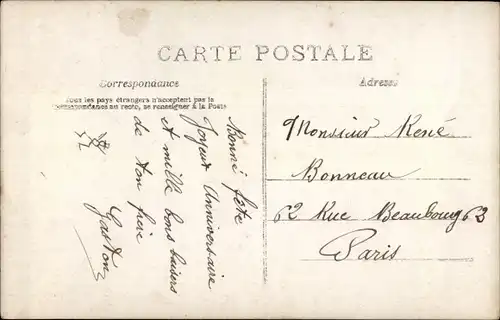 CARTE POSTALE
Correspondance
Tous les pays étrangers n'acceptent pas la
Correspondance au recto, se renseigner à la Poste
Bonne fête
Joyeux Anniversaire
et mille bons baisers
de ton frère
Gaston
Adresse
Monsieur René
Bonneau
62 Rue Beaubourg 62
Paris